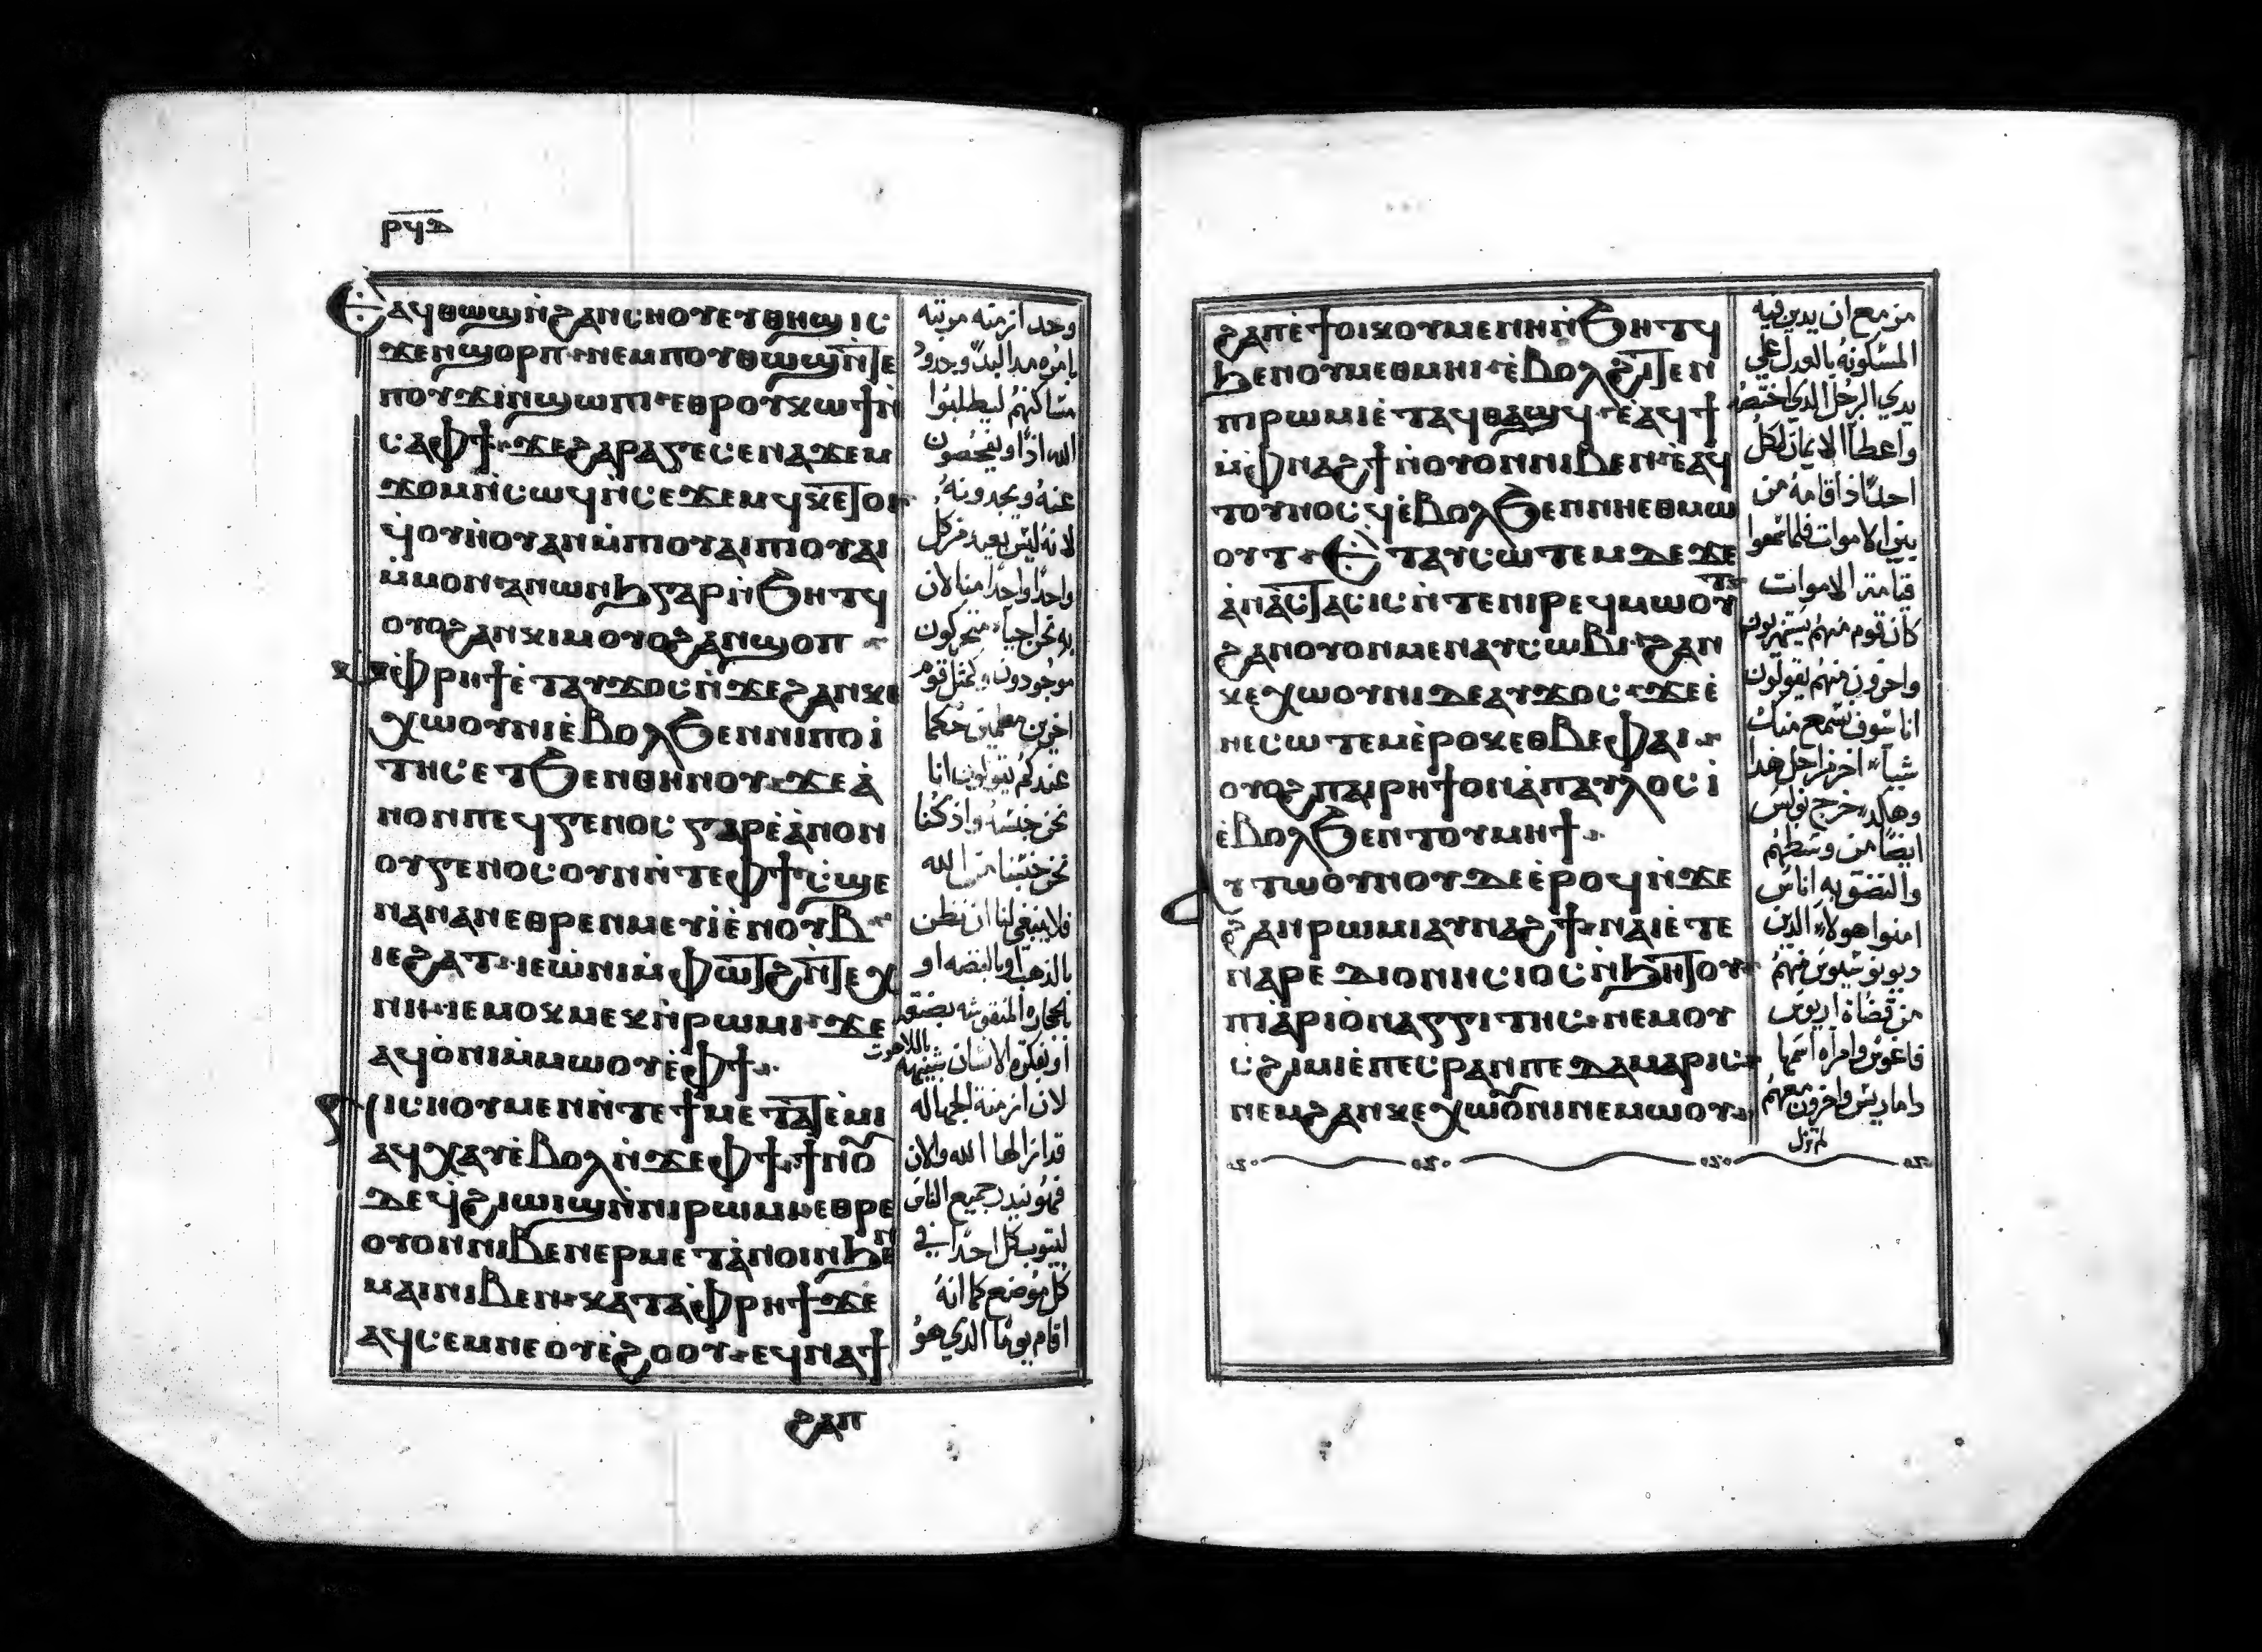 ⲣϥⲇ
Ⲉⲁϥⲑⲱϣⲛ̀ϩⲁⲛⲥⲏⲟⲩⲉⲩⲑⲏϣ ⲓⲥ
ϫⲉⲛϣⲟⲣⲡ ⲛⲉⲙⲡⲟⲩⲑⲱϣⲛ̀ⲧⲉ
ⲡⲟⲩϫⲓⲛϣⲱⲡⲓ ⲉⲑⲣⲟⲩⲕⲱϯⲛ̀
ⲥⲁⲫϯ ϫⲉϩⲁⲣⲁⲅⲉⲥⲉⲛⲁϫⲉⲙ
ϫⲟⲙⲛ̀ⲥⲱϥⲛ̀ⲥⲉϫⲉⲙϥ ⲕⲉⲧⲟⲓ
ϥⲟⲩⲏⲟⲩⲁⲛⲙ̀ⲡⲓⲟⲩⲁⲓⲡⲓⲟⲩⲁⲓ
ⲙ̀ⲙⲟⲛ ⲁⲛⲱⲛϧⲅⲁⲣⲛ̀ϧⲏⲧϥ
ⲟⲩⲟϩⲁⲛⲕⲓⲙⲟⲩⲟϩⲁⲛϣⲟⲡ
ⲙ̀ⲫⲣⲏϯⲉ̀ⲧⲁⲩϫⲟⲥⲛ̀ϫⲉϩⲁⲛⲕⲉ
ⲭⲱⲟⲩⲛⲓⲉ̀ⲃⲟⲗϧⲉⲛⲛⲓⲡⲟⲓ
ⲧⲏⲥⲉⲧϧⲉⲛⲑⲏⲛⲟⲩ ϫⲉⲁ̀
ⲛⲟⲛⲡⲉϥⲅⲉⲛⲟⲥ ⲅⲁⲣⲉ̀ⲁ̀ⲛⲟⲛ
ⲟⲩⲅⲉⲛⲟⲥⲟⲩⲛⲛ̀ⲧⲉⲫϯ ⲥ̀ϣⲉ
ⲛⲁⲛⲁⲛⲉⲑⲣⲉⲛⲙⲉⲩⲓ̀ⲉ̀ⲛⲟⲩⲃ
ⲓⲉϩⲁⲧ ⲓⲉⲱ̀ⲛⲓⲙ̀ⲫⲱⲧϩⲛ̀ⲧⲉⲭ
ⲛⲏ ⲓⲉⲙⲟⲕⲙⲉⲕⲛ̀ⲣⲱⲙⲓ ϫⲉ
ⲁϥⲟ̀ⲛⲓⲙ̀ⲙⲱⲟⲩⲉ̀ⲫϯ
ⲛⲓⲥⲏⲟⲩⲙⲉⲛⲛ̀ⲧⲉϯⲙⲉⲧⲁⲧⲉ̀ⲙⲓ
ⲁϥⲭⲁⲩⲉ̀ⲃⲟⲗⲛ̀ϫⲉⲫϯ ϯⲛⲟ
ⲇⲉϥϩⲓⲱⲓϣⲛ̀ⲛⲓⲣⲱⲙⲓ ⲉⲑⲣⲉ
ⲟⲩⲟⲛⲛⲓⲃⲉⲛⲉⲣⲙⲉⲧⲁ̀ⲛⲟⲓⲛϧⲉⲛ
ⲙⲁⲓⲛⲓⲃⲉⲛ ⲕⲁⲧⲁⲫ̀ⲣⲏϯϫⲉ
ⲁϥⲥⲉⲙⲛⲉⲟⲩⲉ̀ϩⲟⲟⲩ ⲉϥⲛⲁϯ
ϩⲁⲡ
وحدد ازمنه موتبه
بامره مدالبد وحدود
مساكنهم ليطلبوا
الله اذا ويفحصون
عنه ويجدونه
لانه ليس بعيد من كل
واحدا واحدا منا لان
به نحن احيا متحركون
موجودون وكمثل قوم
اخرين معلمين حكما
عندكم يقولون انا
نحن جنسه واذ كنا
نحن جنسا من الله
فلا ينبغي لنا ان نظن
بالذهب او بالفضه او
بالحجاره المنقوشه بصنعه
او بفكره الانسان شبيهه
باللاهوت
لان ازمنة الجهاله
قد ازالها الله والان
فهو ينذر جميع الناس
ليتوب كل احد في
كل موضع كما انه
اقام يوما الذي هو
ϩⲁⲡⲉ̀ϯⲟⲓⲕⲟⲩⲙⲉⲛⲏⲛ̀ϧⲏⲧϥ
ϧⲉⲛⲟⲩⲙⲉⲑⲙⲏⲓ ⲉ̀ⲃⲟⲗϩⲓⲧⲉⲛ
ⲡⲓⲣⲱⲙⲓⲉ̀ⲧⲁϥⲑⲁϣϥ ⲉ̀ⲁϥϯ
ⲙ̀ⲫⲛⲁϩϯⲛ̀ⲟⲩⲟⲛⲛⲓⲃⲉⲛ ⲉ̀ⲁϥ
ⲧⲟⲩⲛⲟⲥϥⲉ̀ⲃⲟⲗϧⲉⲛⲛⲏⲉⲑⲙⲱ
ⲟⲩⲧ Ⲉⲧⲁⲩⲥⲱⲧⲉⲙⲇⲉϫⲉ
ⲁ̀ⲛⲁ̀ⲥⲧⲁⲥⲓⲥⲛ̀ⲧⲉⲛⲓⲣⲉϥⲙⲱⲟⲩⲧ
ϩⲁⲛⲟⲩⲟⲛⲙⲉⲛⲁⲩⲥⲱⲃⲓ ϩⲁⲛ
ⲕⲉⲭⲱⲟⲩⲛⲓⲇⲉⲁⲩϫⲟⲥ ϫⲉⲉ̀
ⲛⲉⲥⲱⲧⲉⲙⲉ̀ⲣⲟⲕⲉⲑⲃⲉⲫⲁⲓ
ⲟⲩⲟϩⲡⲁⲓⲣⲏϯⲟⲛⲁ̀ⲡⲁⲩⲗⲟⲥⲓ̀
ⲉ̀ⲃⲟⲗϧⲉⲛⲧⲟⲩⲙⲏϯ
ⲁⲩⲧⲱⲟⲩⲛⲟⲩⲇⲉⲉ̀ⲣⲟϥⲛ̀ϫⲉ
ϩⲁⲛⲣⲱⲙⲓⲁⲩⲛⲁϩϯ ⲛⲁⲓⲉ̀ⲧⲉ
ⲛⲁⲣⲉⲇⲓⲟⲛⲏⲥⲓⲟⲥⲛ̀ϧⲏⲧⲟⲩ
ⲡⲓⲁ̀ⲣⲓⲟ̀ⲛⲁⲅⲅⲓⲧⲏⲥ ⲛⲉⲙⲟⲩ
ⲥϩⲓⲙⲓⲉ̀ⲡⲉⲥⲣⲁⲛⲡⲉⲇⲁⲙⲁⲣⲓⲥ
ⲛⲉⲙϩⲁⲛⲕⲉⲭⲱⲟⲩⲛⲓⲛⲉⲙⲱⲟⲩ
مزمع ان يدين فيه
المسكونه بالعدل علي
يدي الرجل الذي اختصه
واعطا الايمان لكل
احد اذ اقامه من
بين الاموات فلما سمعوا
قيامة الاموات
كان قوم منهم يستهزيون
واخرون منهم يقولون
انا سوف نسمع منك
شيا اخر من اجل هذا
وهكذا خرج بولس
ايضا من وسطهم
والتصق به اناس
امنوا هولاء الذين
ديونوسيوس منهم
من قضاة اريوس
فاغوس وامراه اسمها
داماريس واخرون معهم
لم تزل